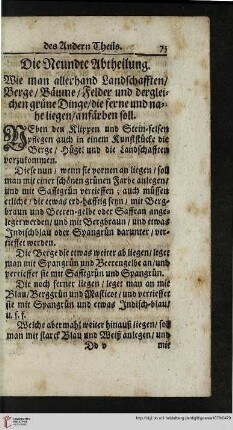 des Andern Theils. 73
Die Neundte Abtheilung.
Wie man allerhand Landschafften/
Berge/ Bäume/ Felder und derglei-
chen grüne Dinge/ die ferne und na-
he liegen/ anfärben soll.
NEben den Klippen und Stein-felsen
pflegen auch in einem Kunststücke die
Berge/ Hügel und die Landschafften
vorzukommen.
Diese nun/ wenn sie vornen an liegen/ soll
man mit einer schönen grünen Farbe anlegen/
und mit Safftgrün vertieffen; auch müssen
etliche/ die etwas erd-hafftig seyn/ mit Berg-
braun und Beeren-gelbe oder Saffran ange-
leget werden/ und mit Bergbraun/ und etwas
Indischblau oder Spangrün darunter/ ver-
tieffet werden.
Die Berge die etwas weiter ab liegen/ leget
man mit Spangrün und Beerengelbe an/ und
vertieffet sie mit Safftgrün und Spangrün.
Die noch ferner liegen/ leget man an mit
Blau/ Berggrün und Masticot/ und vertieffet
sie mit Spangrün und etwas Indisch-blau/
u. s. f.
Welche abermahl weiter hinauß liegen/ soll
man mit starck Blau und Weiß anlegen/ und
Dd v mit